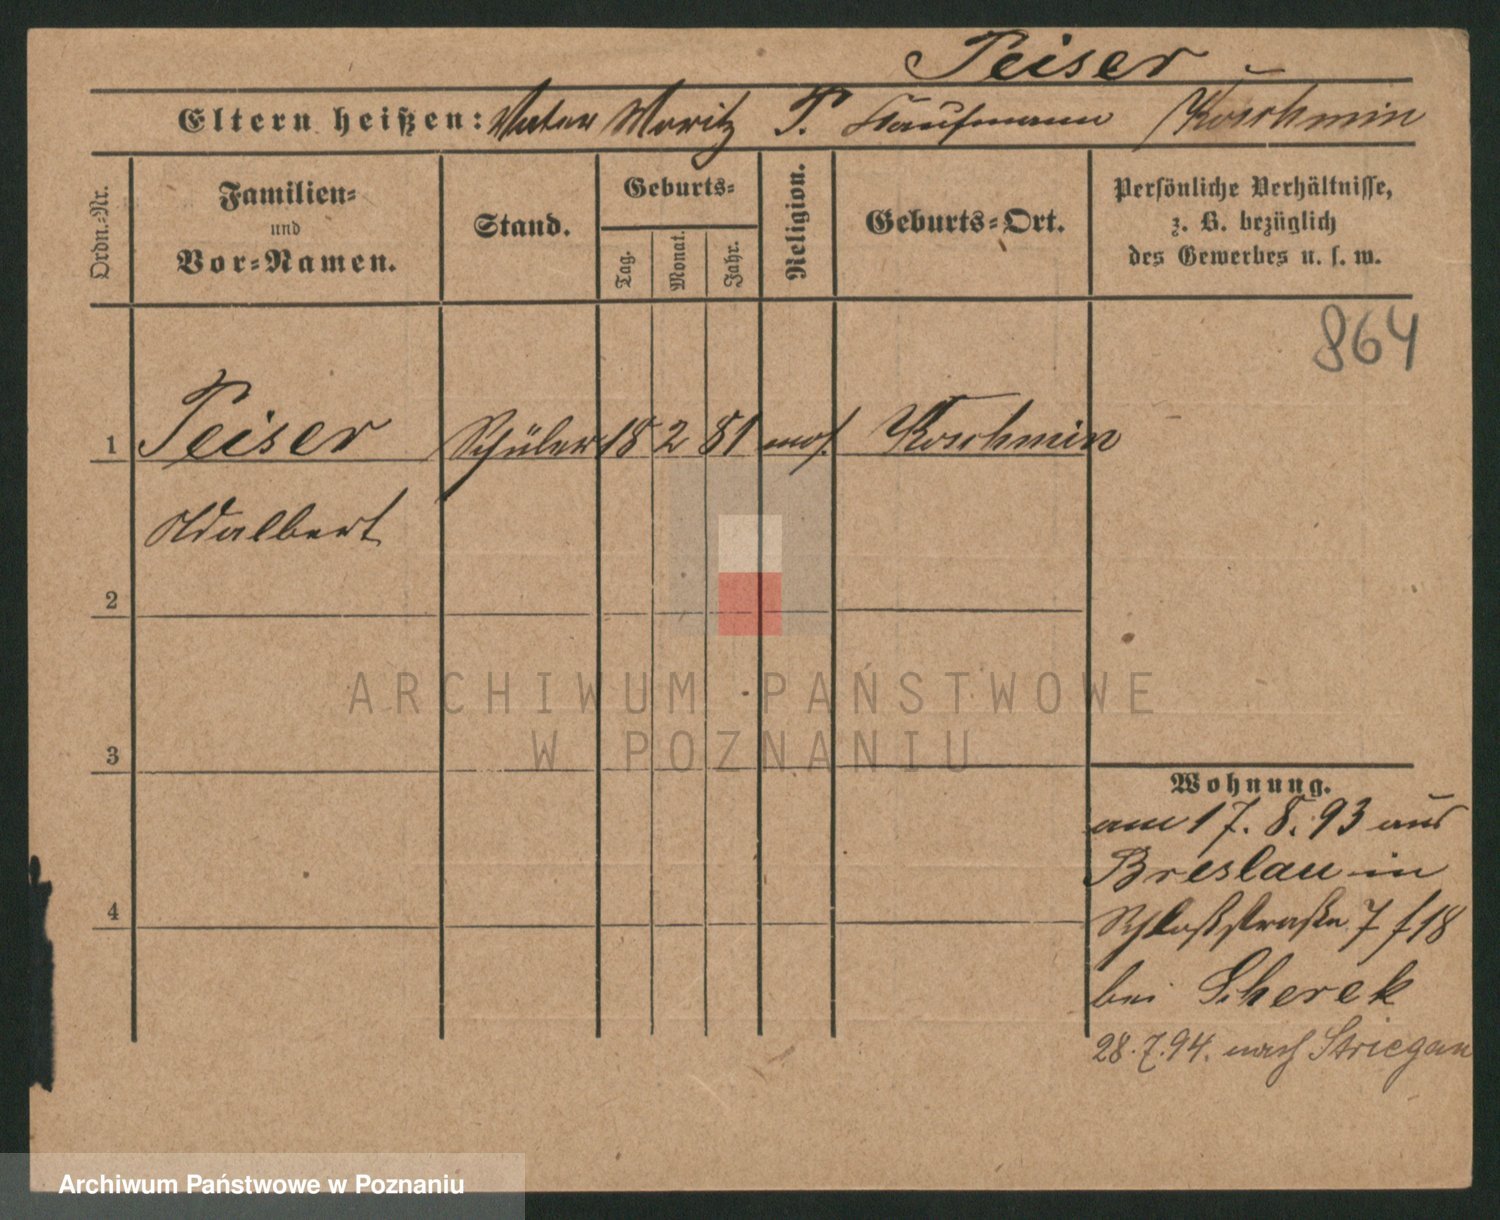 Peiser
Eltern heißen: Vater Moritz P. Kaufmann Koschmin
Ordn.-Nr.
Familien-
und
Vor-Namen.
Stand.
Geburts-
Tag.
Monat.
Jahr.
Religion.
Geburts-Ort.
Persönliche Verhältnisse,
z. B. bezüglich
des Gewerbes u. s. w.
864
1 Peiser Schüler 18 2 81 mos. Koschmin
Adalbert
2
3
4
Wohnung.
am 17. 8. 93 aus
Breslau in
Schloßstraße 7 f 18
bei Scherek
28.7.94. nach Striegau
ARCHIWUM PAŃSTWOWE
W POZNANIU
Archiwum Państwowe w Poznaniu